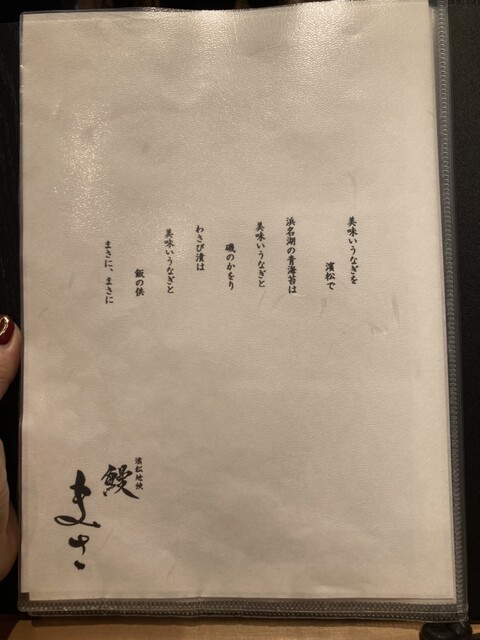 美味いうなぎを
濱松で
浜名湖の青海苔は
美味いうなぎと
磯のかをり
わさび漬は
美味いうなぎと
飯の供
まさに、まさに
濱松地焼
鰻
まさ